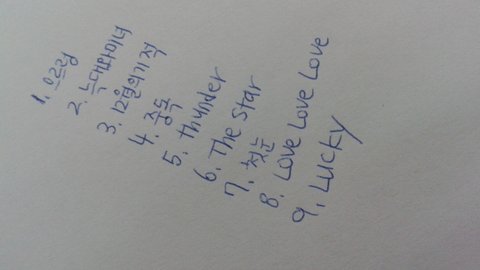 1. 으르렁
2. 늑대와미녀
3. 12월의기적
4. 중독
5. thunder
6. The Star
7. 첫눈
8. LOVE LOVE LOVE
9. LUCKY